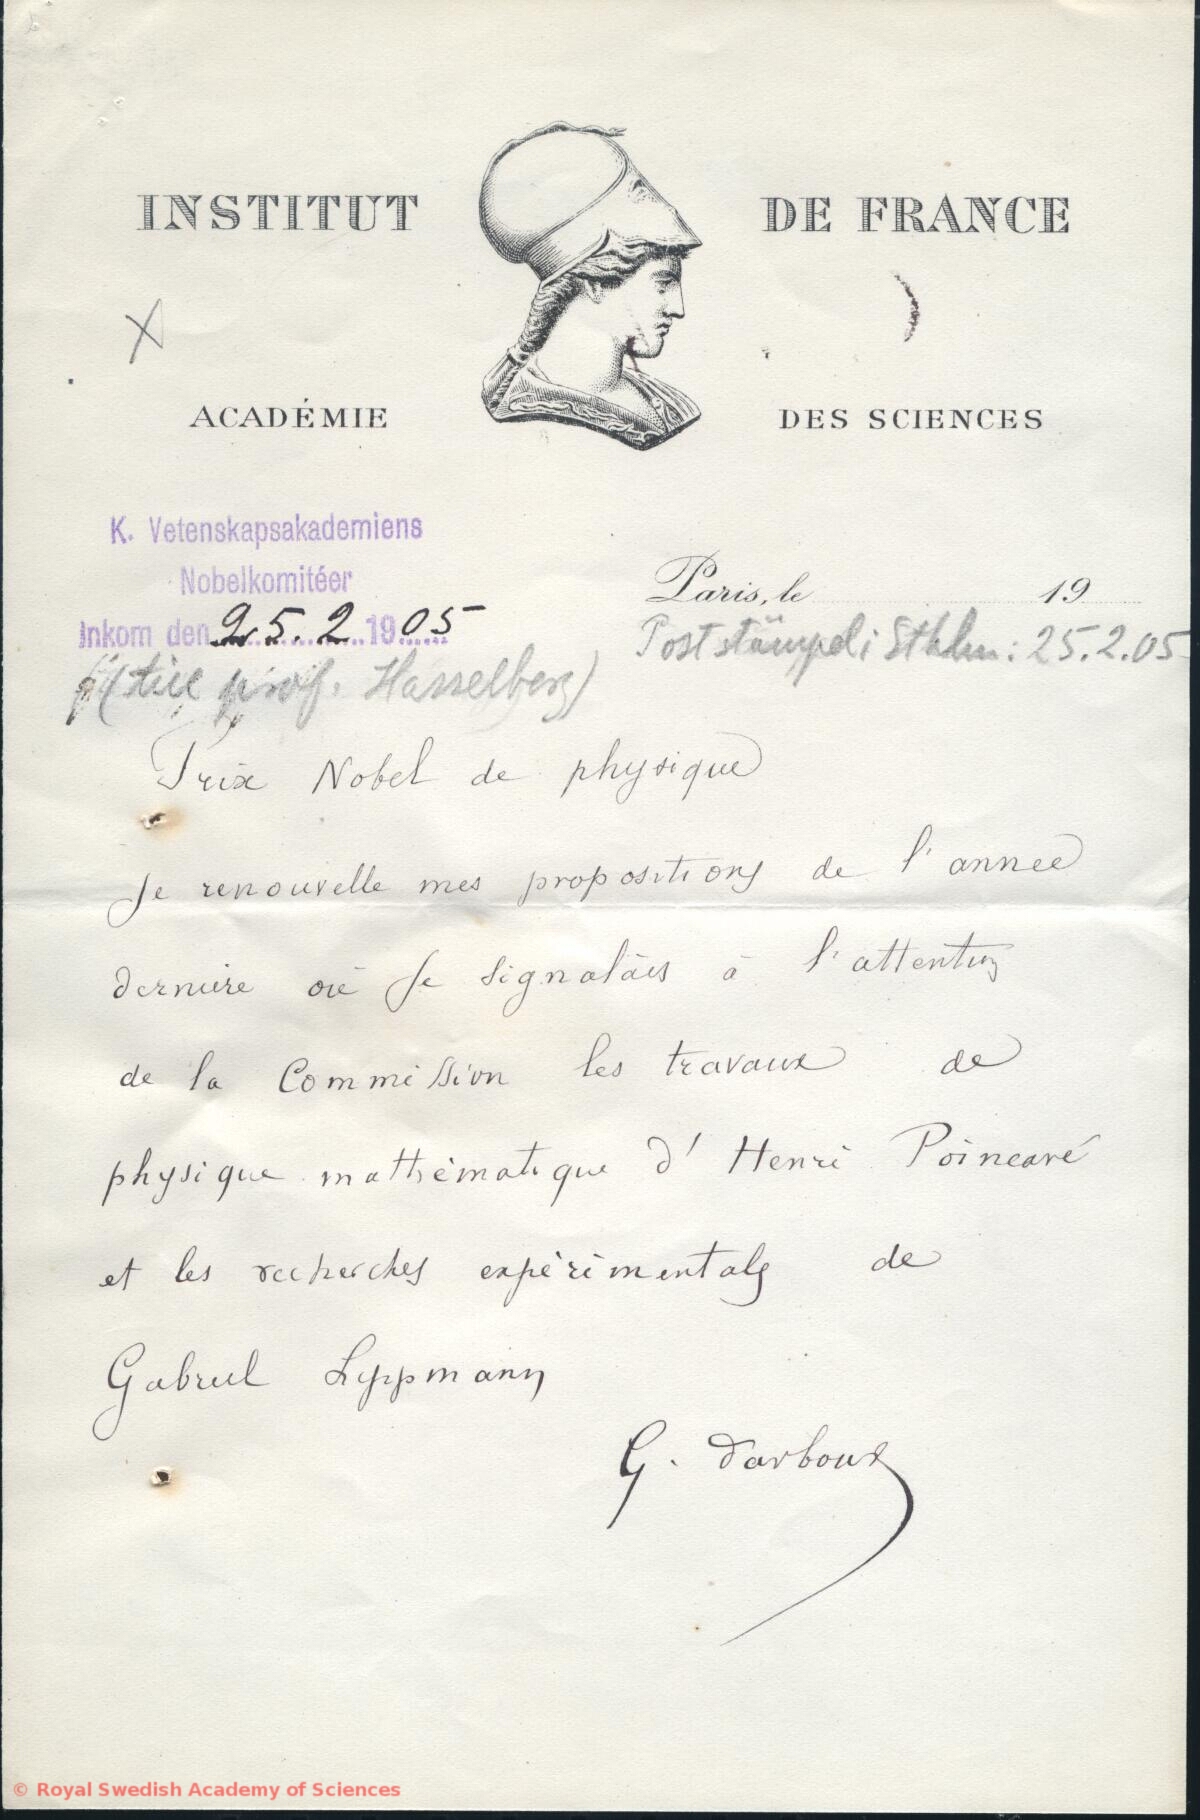 INSTITUT DE FRANCE
ACADÉMIE DES SCIENCES
K. Vetenskapsakademiens
Nobelkomitéer
Inkom den 25.2 1905
Paris, le 19
Poststämpel i Sthlm: 25.2.05
(till prof. Hasselberg)
Prix Nobel de physique
Je renouvelle mes propositions de l'année
dernière où je signalais à l'attention
de la Commission les travaux de
physique mathématique d'Henri Poincaré
et les recherches expérimentales de
Gabriel Lippmann
G. Darboux
© Royal Swedish Academy of Sciences